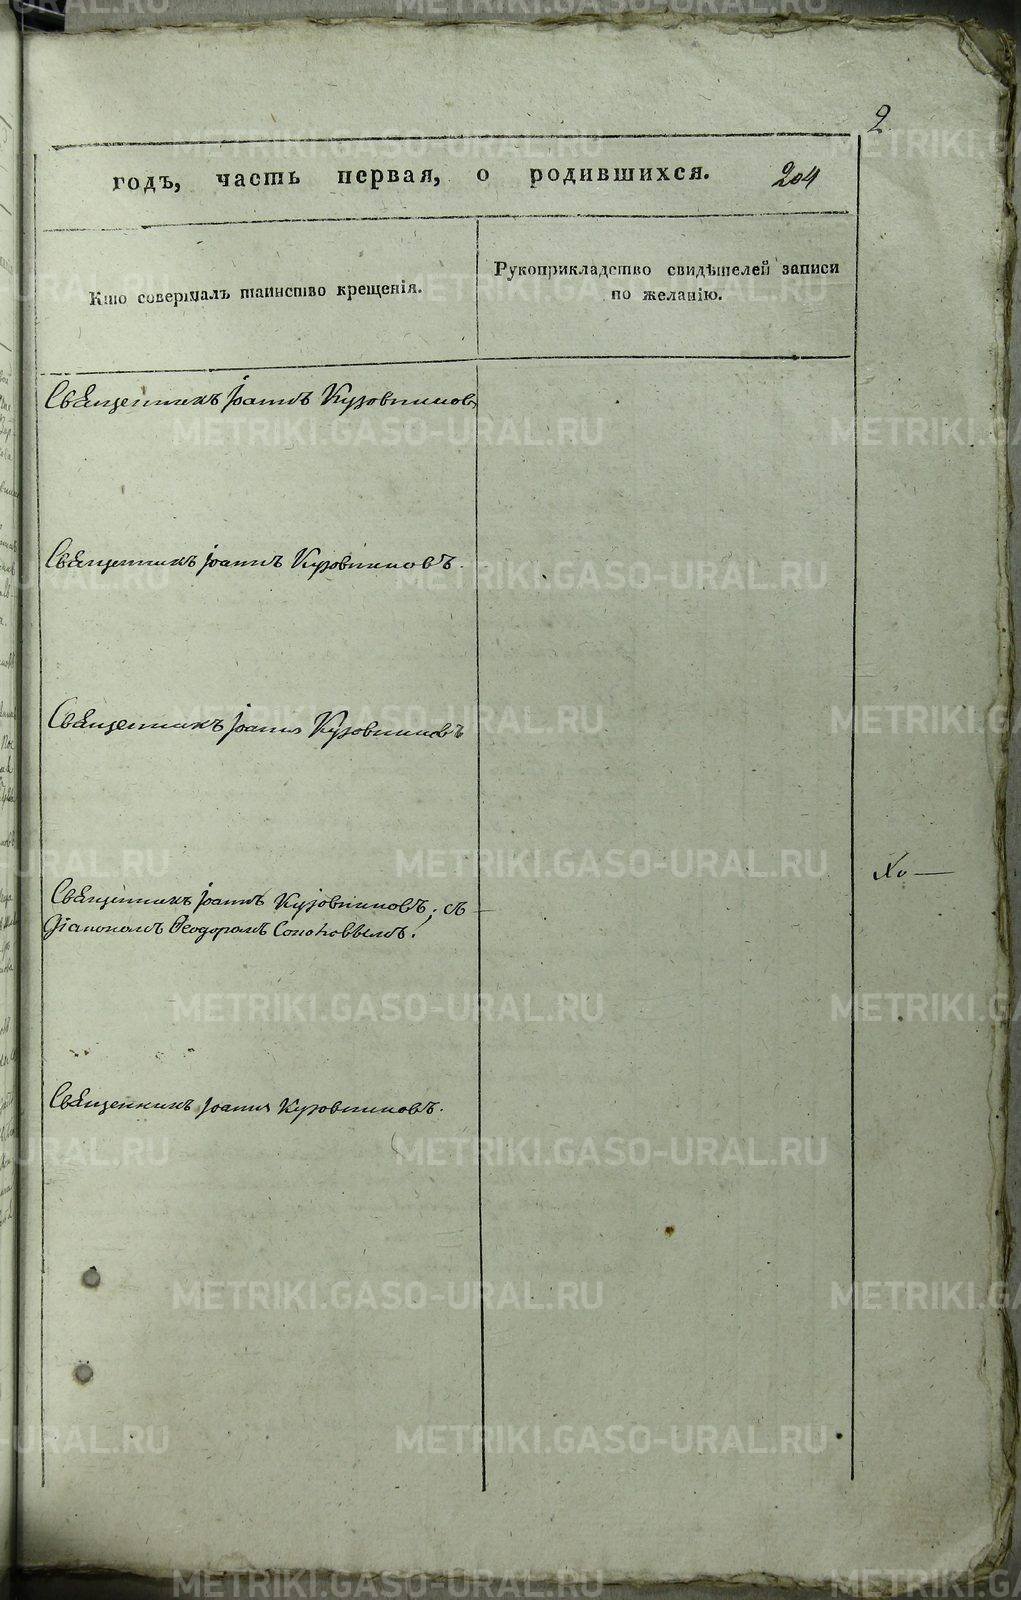 2
годъ, часть первая, о родившихся. 204
Кто совершалъ таинство крещенія.
Рукоприкладство свидѣтелей записи
по желанію.
Священникъ Іоаннъ Кузовниковъ
Священникъ Іоаннъ Кузовниковъ.
Священникъ Іоаннъ Кузовниковъ
Священникъ Іоаннъ Кузовниковъ; съ
Діакономъ Ѳеодоромъ Соколовымъ.
Священникъ Іоаннъ Кузовниковъ.
METRIKI.GASO-URAL.RU